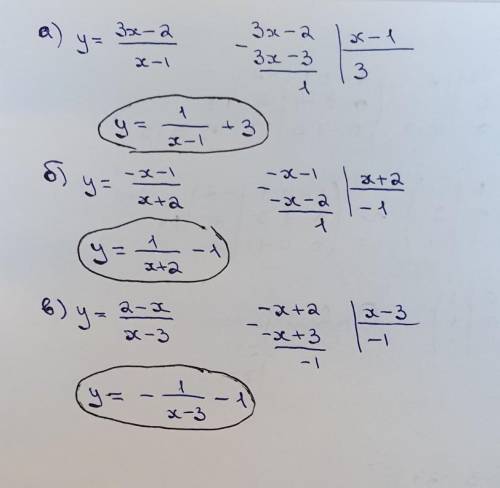 а) y = (3x-2)/(x-1)
- 3x-2 | x-1
3x-3 | 3
1
y = 1/(x-1) + 3
б) y = (-x-1)/(x+2)
- -x-1 | x+2
-x-2 | -1
1
y = 1/(x+2) - 1
в) y = (2-x)/(x-3)
- -x+2 | x-3
-x+3 | -1
-1
y = - 1/(x-3) - 1